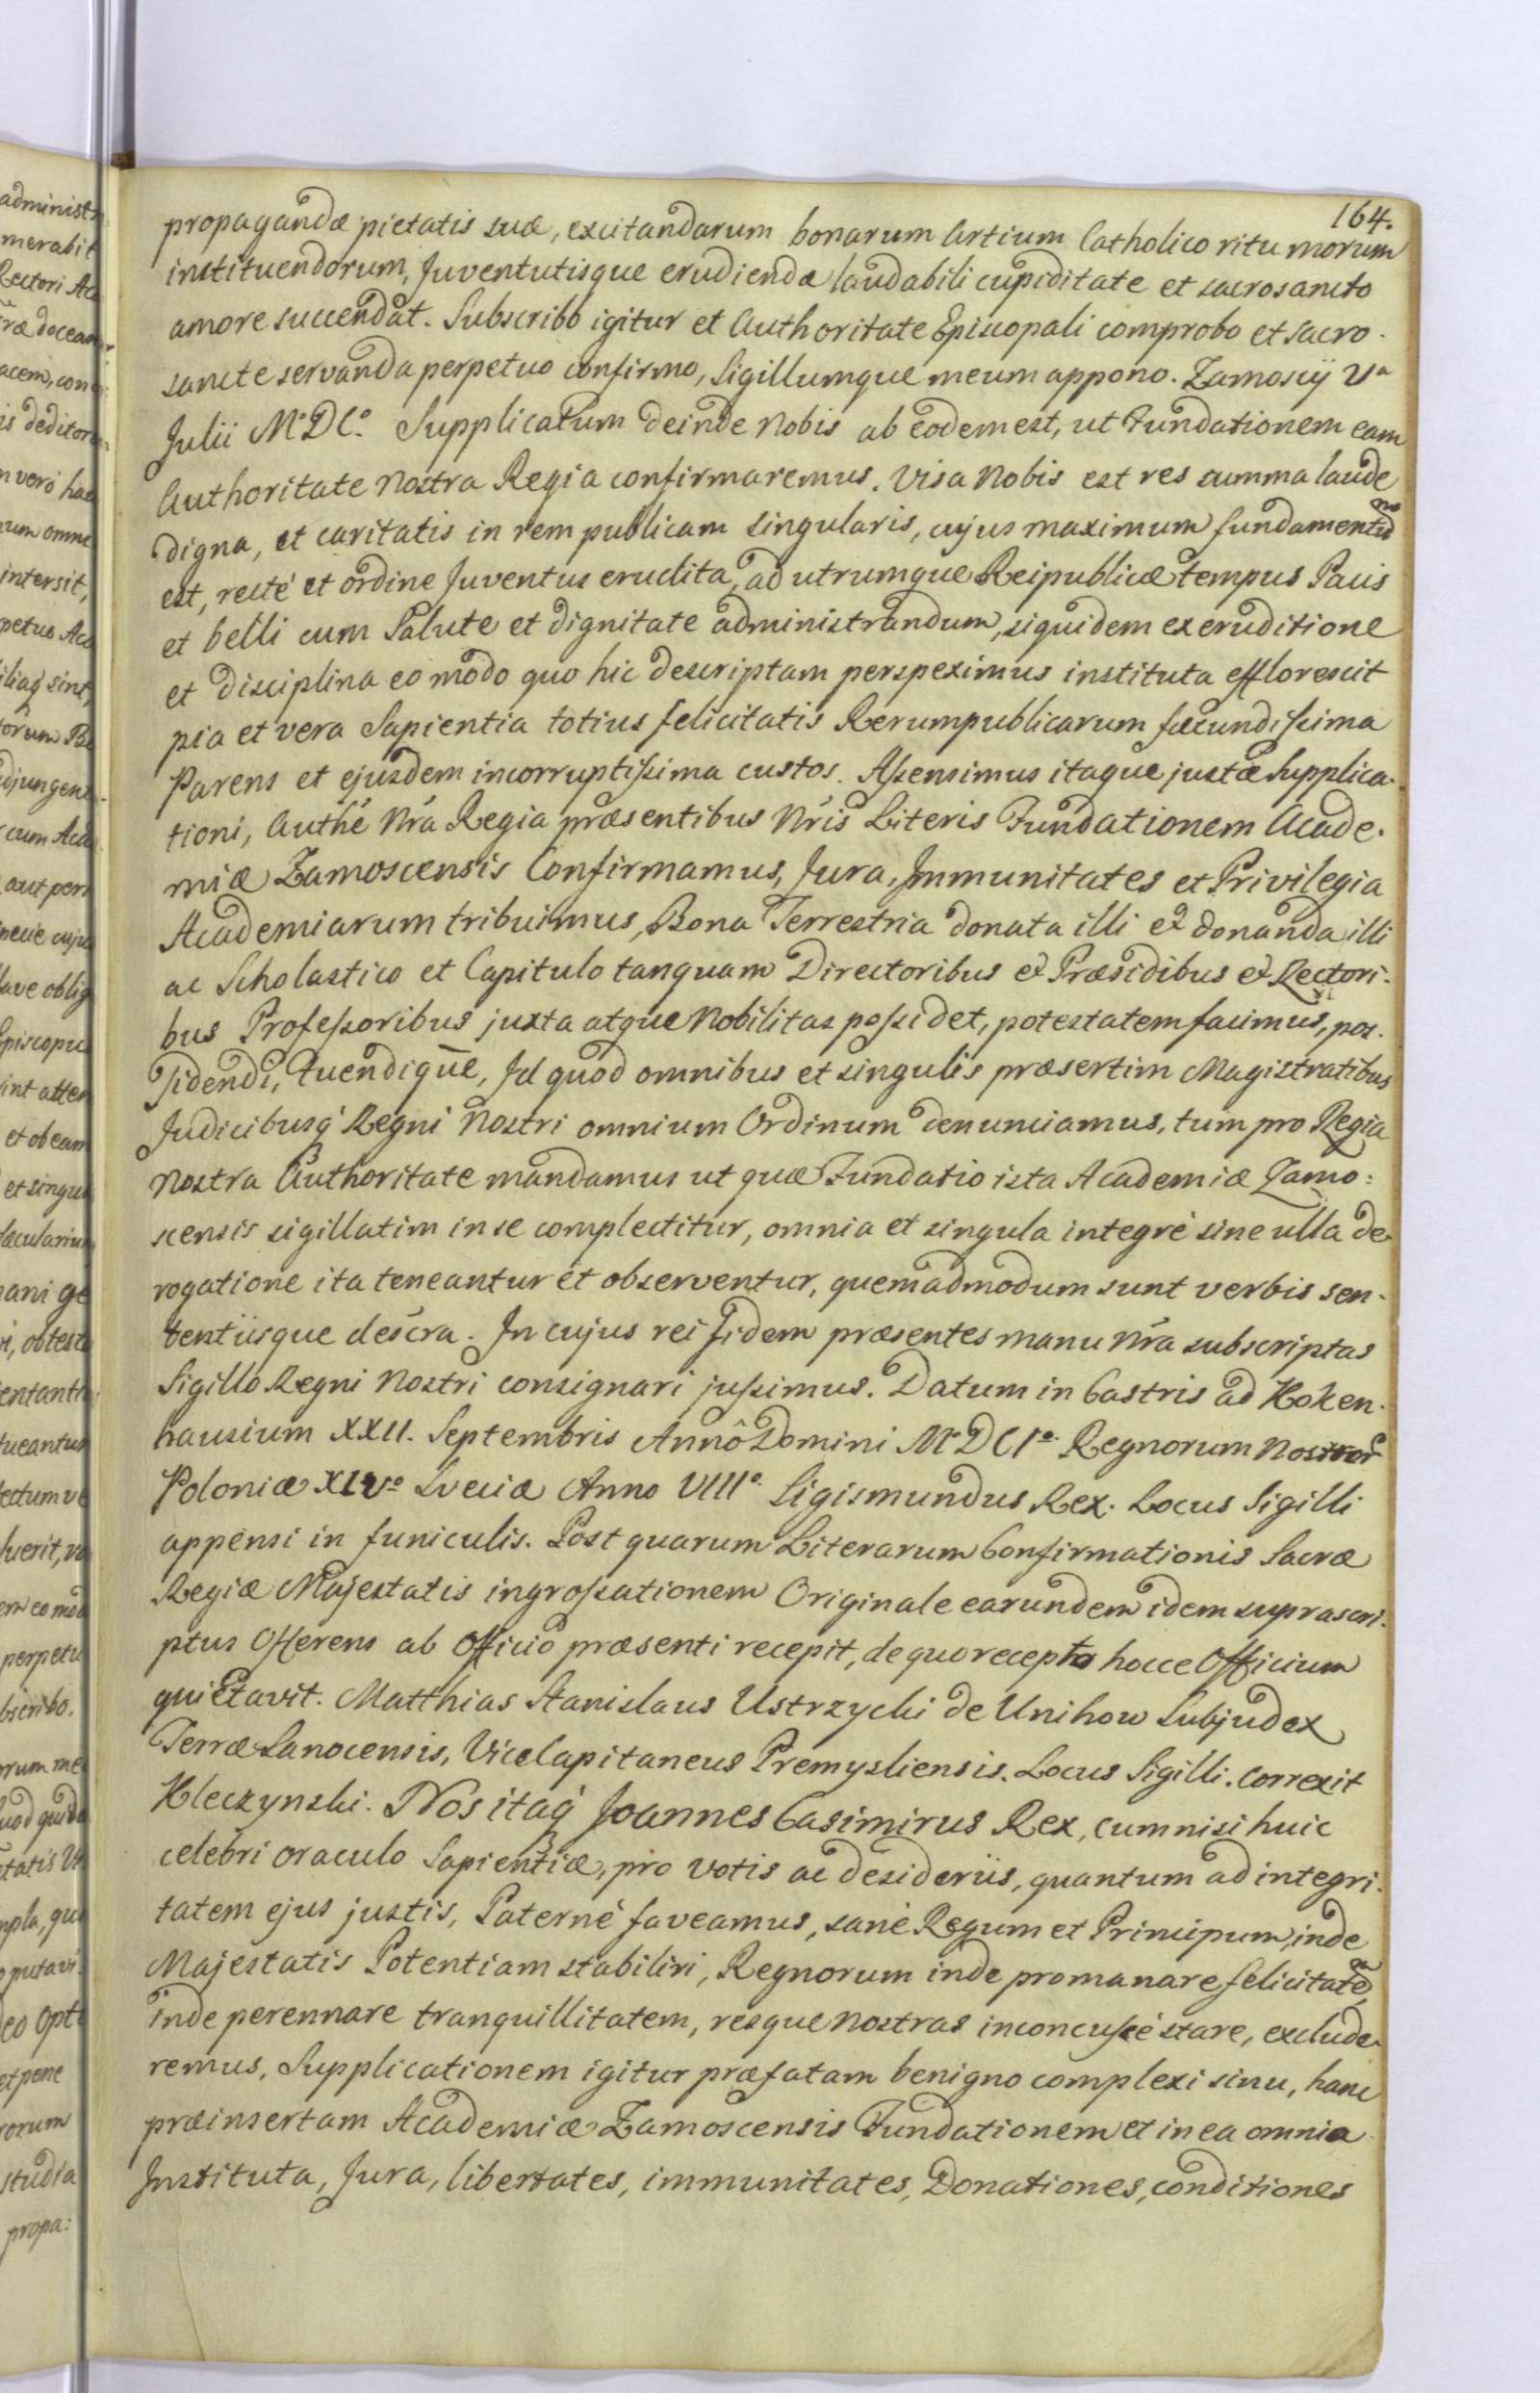 164.
propagandæ pietatis suæ, excitandarum bonarum Artium Catholico ritu morum
instituendorum, Juventutisque erudiendæ laudabili cupiditate et sacrosancto
amore succendat. Subscribo igitur et Authoritate Episcopali comprobo et sacro-
sancte servanda perpetuo confirmo, Sigillumque meum appono. Zamoscij Vª
Julii M°DC° Supplicatum deinde Nobis ab eodem est, ut Fundationem eam
Authoritate Nostra Regia confirmaremus. Visa Nobis est res summa laude
digna, et caritatis in rem publicam singularis, cujus maximum fundamentũ
est, recté et ordine Juventus erudita, ad utrumque Reipublicæ tempus Pacis
et belli cum Salute et dignitate administrandum, siquidem ex eruditione
et Disciplina eo modo quo hic descriptam perspeximus instituta efflorescit
pia et vera Sapientia totius felicitatis Rerumpublicarum fæcundissima
Parens et ejusdem incorruptissima custos. Assensimus itaque justæ Supplica-
tioni, Authé Nrá Regia præsentibus Nrís Literis Fundationem Acade-
miæ Zamoscensis Confirmamus, Jura, Immunitates et Privilegia
Academiarum tribuimus, Bona Terrestria donata illi et donanda illi
ac Scholastico et Capitulo tanquam Directoribus et Præsidibus et Rectori-
bus Professoribus juxta atque Nobilitas possidet, potestatem facimus, pos-
sidendi, tuendiquē, Id quod omnibus et singulis præsertim Magistratibus
Judicibusq́ Regni Nostri omnium Ordinum denunciamus, tum pro Regia
Nostra Authoritate mandamus ut quæ Fundatio ista Academiæ Zamo:
scensis sigillatim in se complectitur, omnia et singula integré sine ulla de
rogatione ita teneantur et observentur, quemadmodum sunt verbis sen-
tentiisque descra. In cujus rei fidem præsentes manu Nrá subscriptas
Sigillo Regni Nostri consignari jussimus. Datum in Castris ad Koken-
hausium XXII. Septembris Annô Domini M°DCI° Regnorum Nostror
Poloniæ XIV° Sveciæ Anno VIII° Sigismundus Rex. Locus Sigilli
appensi in funiculis. Post quarum Literarum Confirmationis Sacræ
Regiæ Majestatis ingrossationem Originale earundem idem suprascri-
ptus Offerens ab Officio præsenti recepit, de quo recepto hocce Officium
quietavit. Matthias Stanislaus Ustrzycki de Unihow Subjudex
Terræ Sanocensis, ViceCapitaneus Premysliensis. Locus Sigilli. Correxit
Kleczynski. Nos itaq́ Joannes Casimirus Rex, cum nisi huic
celebri oraculo Sapientiæ, pro votis ac desideriis, quantum ad integri-
tatem ejus justis, Paterné faveamus, sané Regum et Principum, inde
Majestatis Potentiam stabiliri, Regnorum inde promanare felicitatē,
inde perennare tranquillitatem, resque Nostras inconcussé stare, exclude
remus, Supplicationem igitur præfatam benigno complexi sinu, hanc
præinsertam Academiæ Zamoscensis Fundationem et in ea omnia
Instituta, Jura, libertates, immunitates, Donationes, conditiones